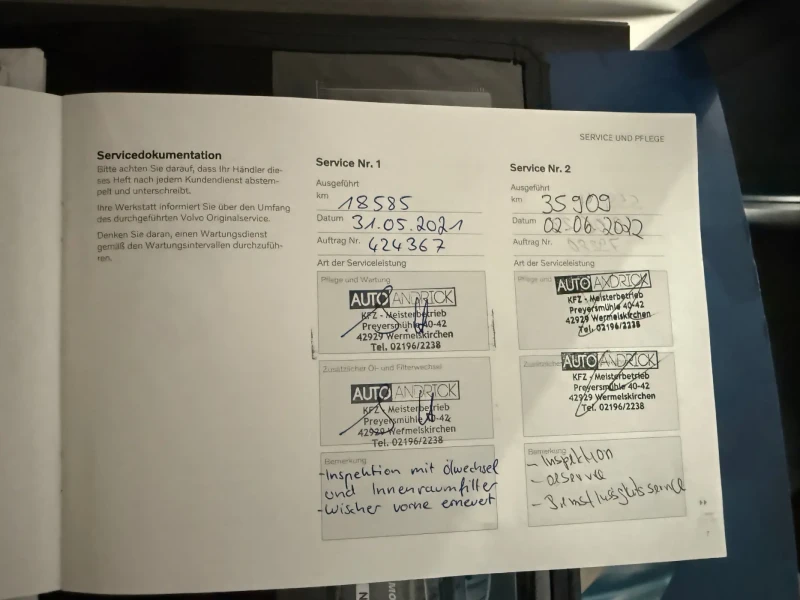 SERVICE UND PFLEGE
Servicedokumentation
Bitte achten Sie darauf, dass Ihr Händler die-
ses Heft nach jedem Kundendienst abstem-
pelt und unterschreibt.
Ihre Werkstatt informiert Sie über den Umfang
des durchgeführten Volvo Originalservice.
Denken Sie daran, einen Wartungsdienst
gemäß den Wartungsintervallen durchzufüh-
ren.
Service Nr. 1
Ausgeführt
km 18585
Datum 31.05.2021
Auftrag Nr. 424367
Art der Serviceleistung
Pflege und Wartung
AUTO ANDRICK
KFZ - Meisterbetrieb
Preyersmühle 40-42
42929 Wermelskirchen
Tel. 02196/2238
Zusätzlicher Öl- und Filterwechsel
AUTO ANDRICK
KFZ - Meisterbetrieb
Preyersmühle 40-42
42929 Wermelskirchen
Tel. 02196/2238
Bemerkung
-Inspektion mit Ölwechsel
und Innenraumfilter
-Wischer vorne erneuert
Service Nr. 2
Ausgeführt
km 35909
Datum 02.06.2022
Auftrag Nr.
Art der Serviceleistung
Pflege und
AUTO ANDRICK
KFZ - Meisterbetrieb
Preyersmühle 40-42
42929 Wermelskirchen
Tel. 02196/2238
Zusätzlicher
AUTO ANDRICK
KFZ - Meisterbetrieb
Preyersmühle 40-42
42929 Wermelskirchen
Tel. 02196/2238
Bemerkung
- Inspektion
- Ölservice
- Bremsflüssigkeitsservice